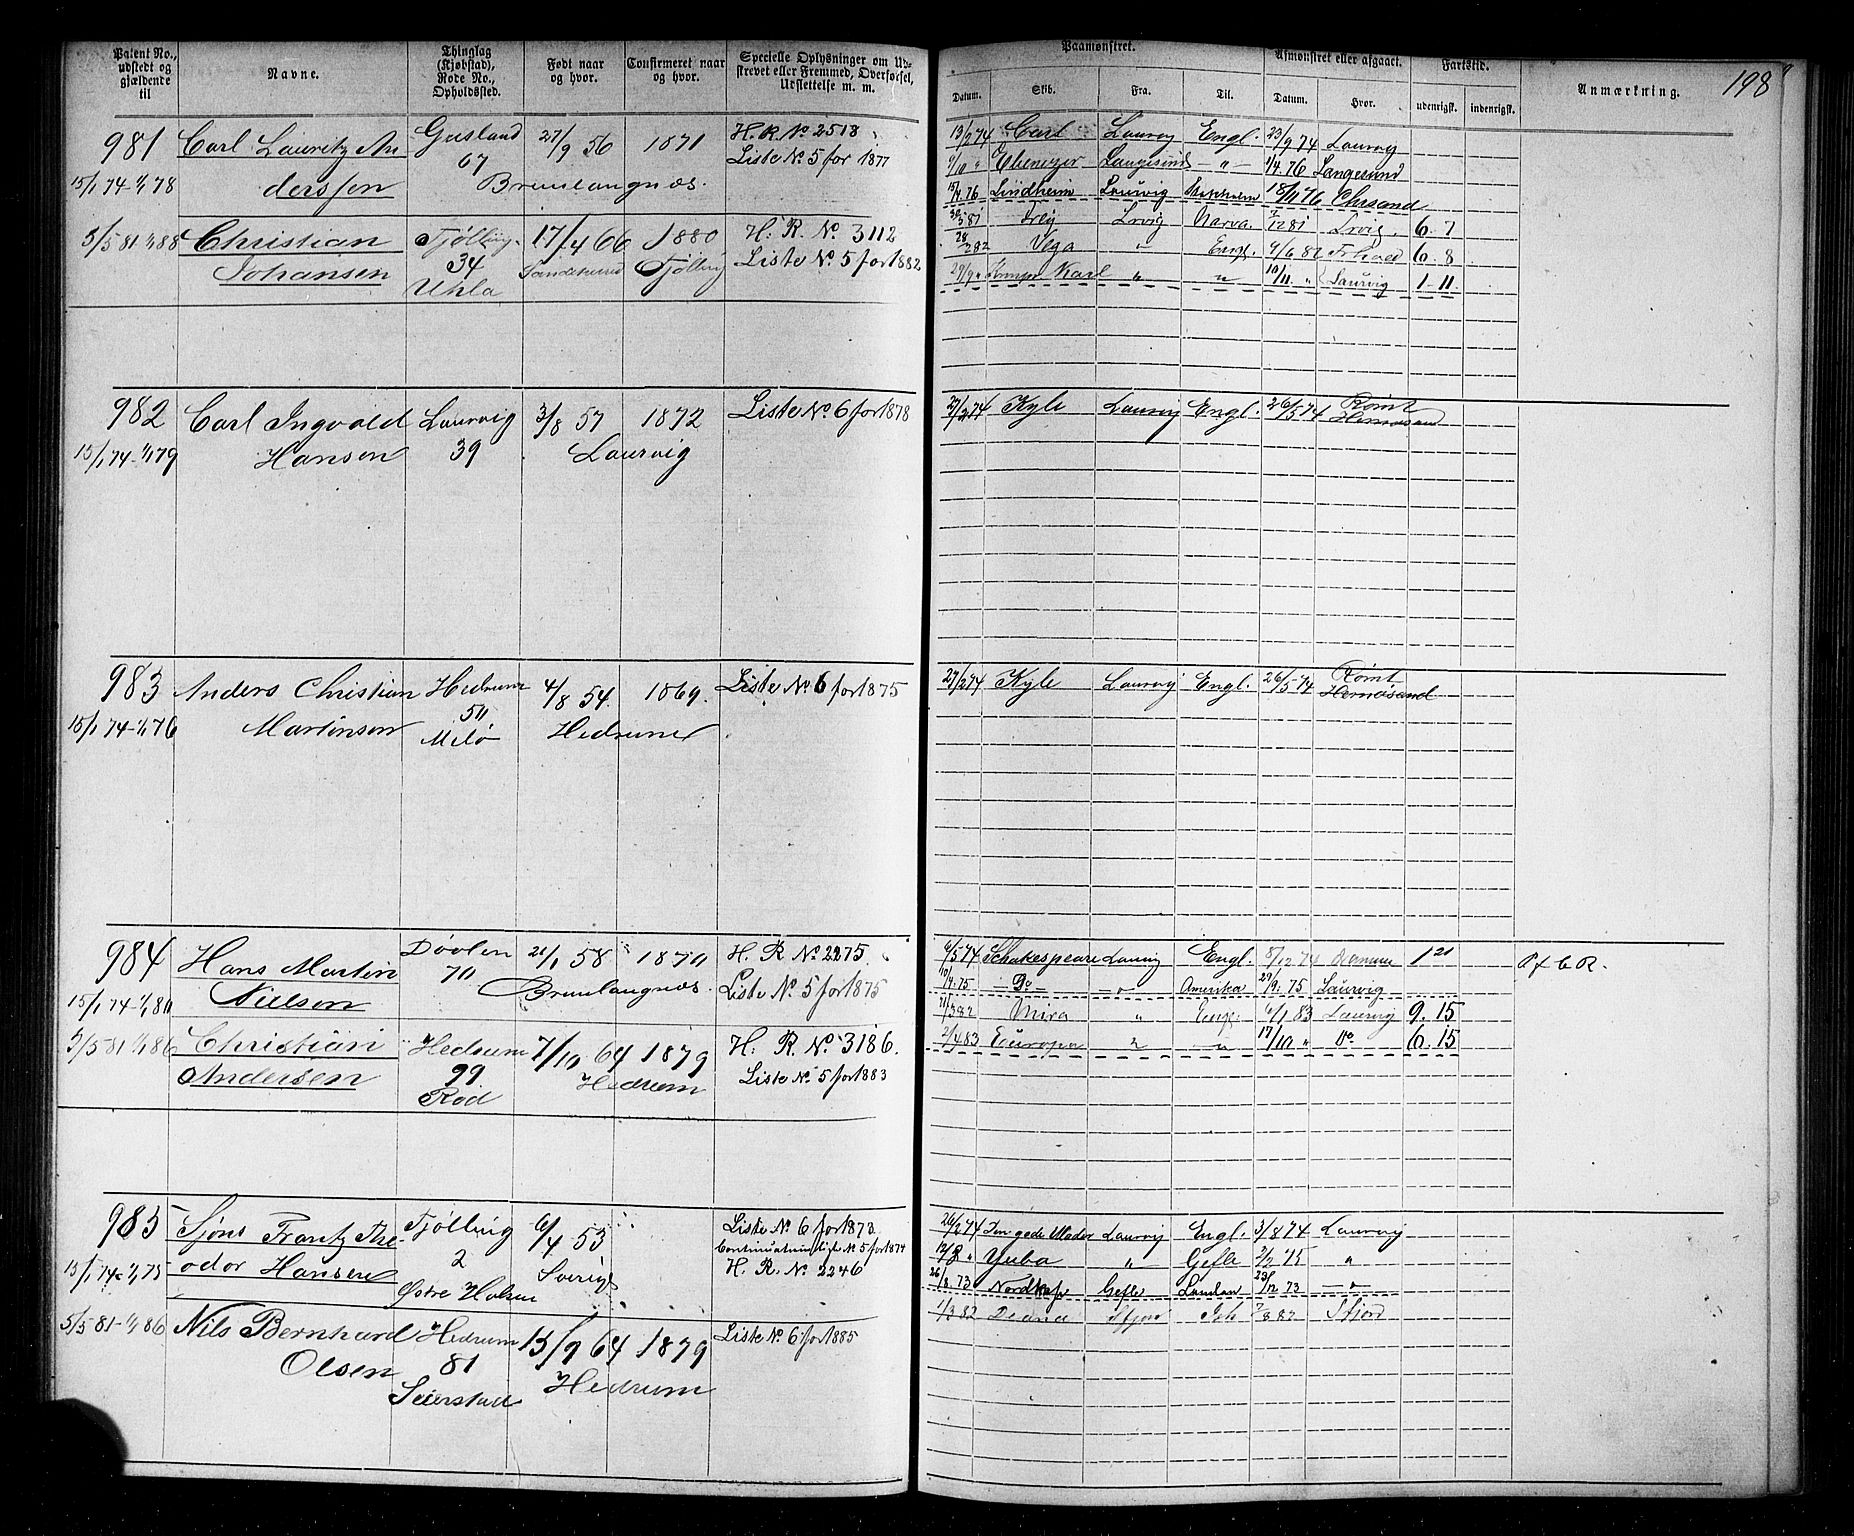 Patent No., udstedt og gjældende til
Navne.
Thinglag (Kjøbstad), Rode No., Opholdssted.
Født naar og hvor.
Confirmeret naar og hvor.
Specielle Oplysninger om Udskrevet eller Fremmed, Overførsel, Udslettelse m. m.
Paamønstret.
Datum.
Skib.
Fra.
Til.
Afmønstret eller afgaaet.
Datum.
Hvor.
Fartstid.
udenrigsk.
indenrigsk.
Anmærkning.
198
981 Carl Lauritz An Gusland 27/9 56 1871 H. R. No 2513
67 Liste No 5 for 1877
15/1 74-1/1 78 derssen Brunlangnæs.
5/5 81 1/1 88 Christian Tjølling 17/4 66 1880 H. R. No. 3112
Johansen 34 Tjølling Liste No. 5 for 1882
Uhla
13/2 74 Carl Laurvig Engl. 23/9 74 Laurvig
9/10 " Ebenezer Langesund -"- 1/4 76 Langesund
15/4 76 Lindheim Laurvig 18/11 76 Chrsand
Lrvig Narva Lrvig. 6. 7
Vega " Engl. 9/6 82 6. 8
29/9 " Karl " " 10/11 " Laurvig 1-11
982 Carl Ingvald Laurvig 3/8 57 1872 Liste No 6 for 1878
15/1 74-1/1 79 Hansen 39 Laurvig
27/2 74 Kyle Laurvig Engl. 26/5 74 Rømt
Hernøsand
983 Anders Christian Hedrum 4/8 54. 1869. Liste No 6 for 1875
50
15/1 74-1/1 76 Martinsen Melø Hedrum
27/2 74 Kyle Laurvig Engl. 26/5 74 Rømt
Hernøsand
984 Hans Martin 21/1 58 1870 H. R. No 2275.
70
15/1 74-1/1 80 Nielsen Brunlangnæs. Liste No. 5 for 1875
5/5 81 1/1 86 Christian Hedrum 7/10 64 1879 H. R. No. 3186.
Andersen 99 Hedrum Liste No 5 for 1883
Rød
6/5 74 Schakespeare Laurvig Engl. 8/12 74 1 21
10/4 75 -Do- -"- Amerika 29/9. 75 Laurvig
" Engl. 6/1 83 Laurvig 9. 15
2/4 83 Europa " -"- 17/10 " Do 6. 15
985 Sjøns Frantz The- Tjølling 6/4 53 Liste No 6 for 1873
2 Continuationsliste No 5 for 1874
15/1 74-1/1 75 odor Hansen Sverige H. R. No. 2246
Østre Halsen
5/5 81-1/1 86 Nils Bernhard Hedrum 15/9 64 1879 Liste No 6 for 1885
Olsen 81 Hedrum
Seierstad
26/2 74 Den gode Moder Laurvig Engl. 3/8 74 Laurvig
12/8 " Yuba " Gefle 2/2 75 "
26/8 73 Nordkap Gefle London 23/12 73 -"-
1/3 82 Diana Sfjord 7/8 82 Sfjord